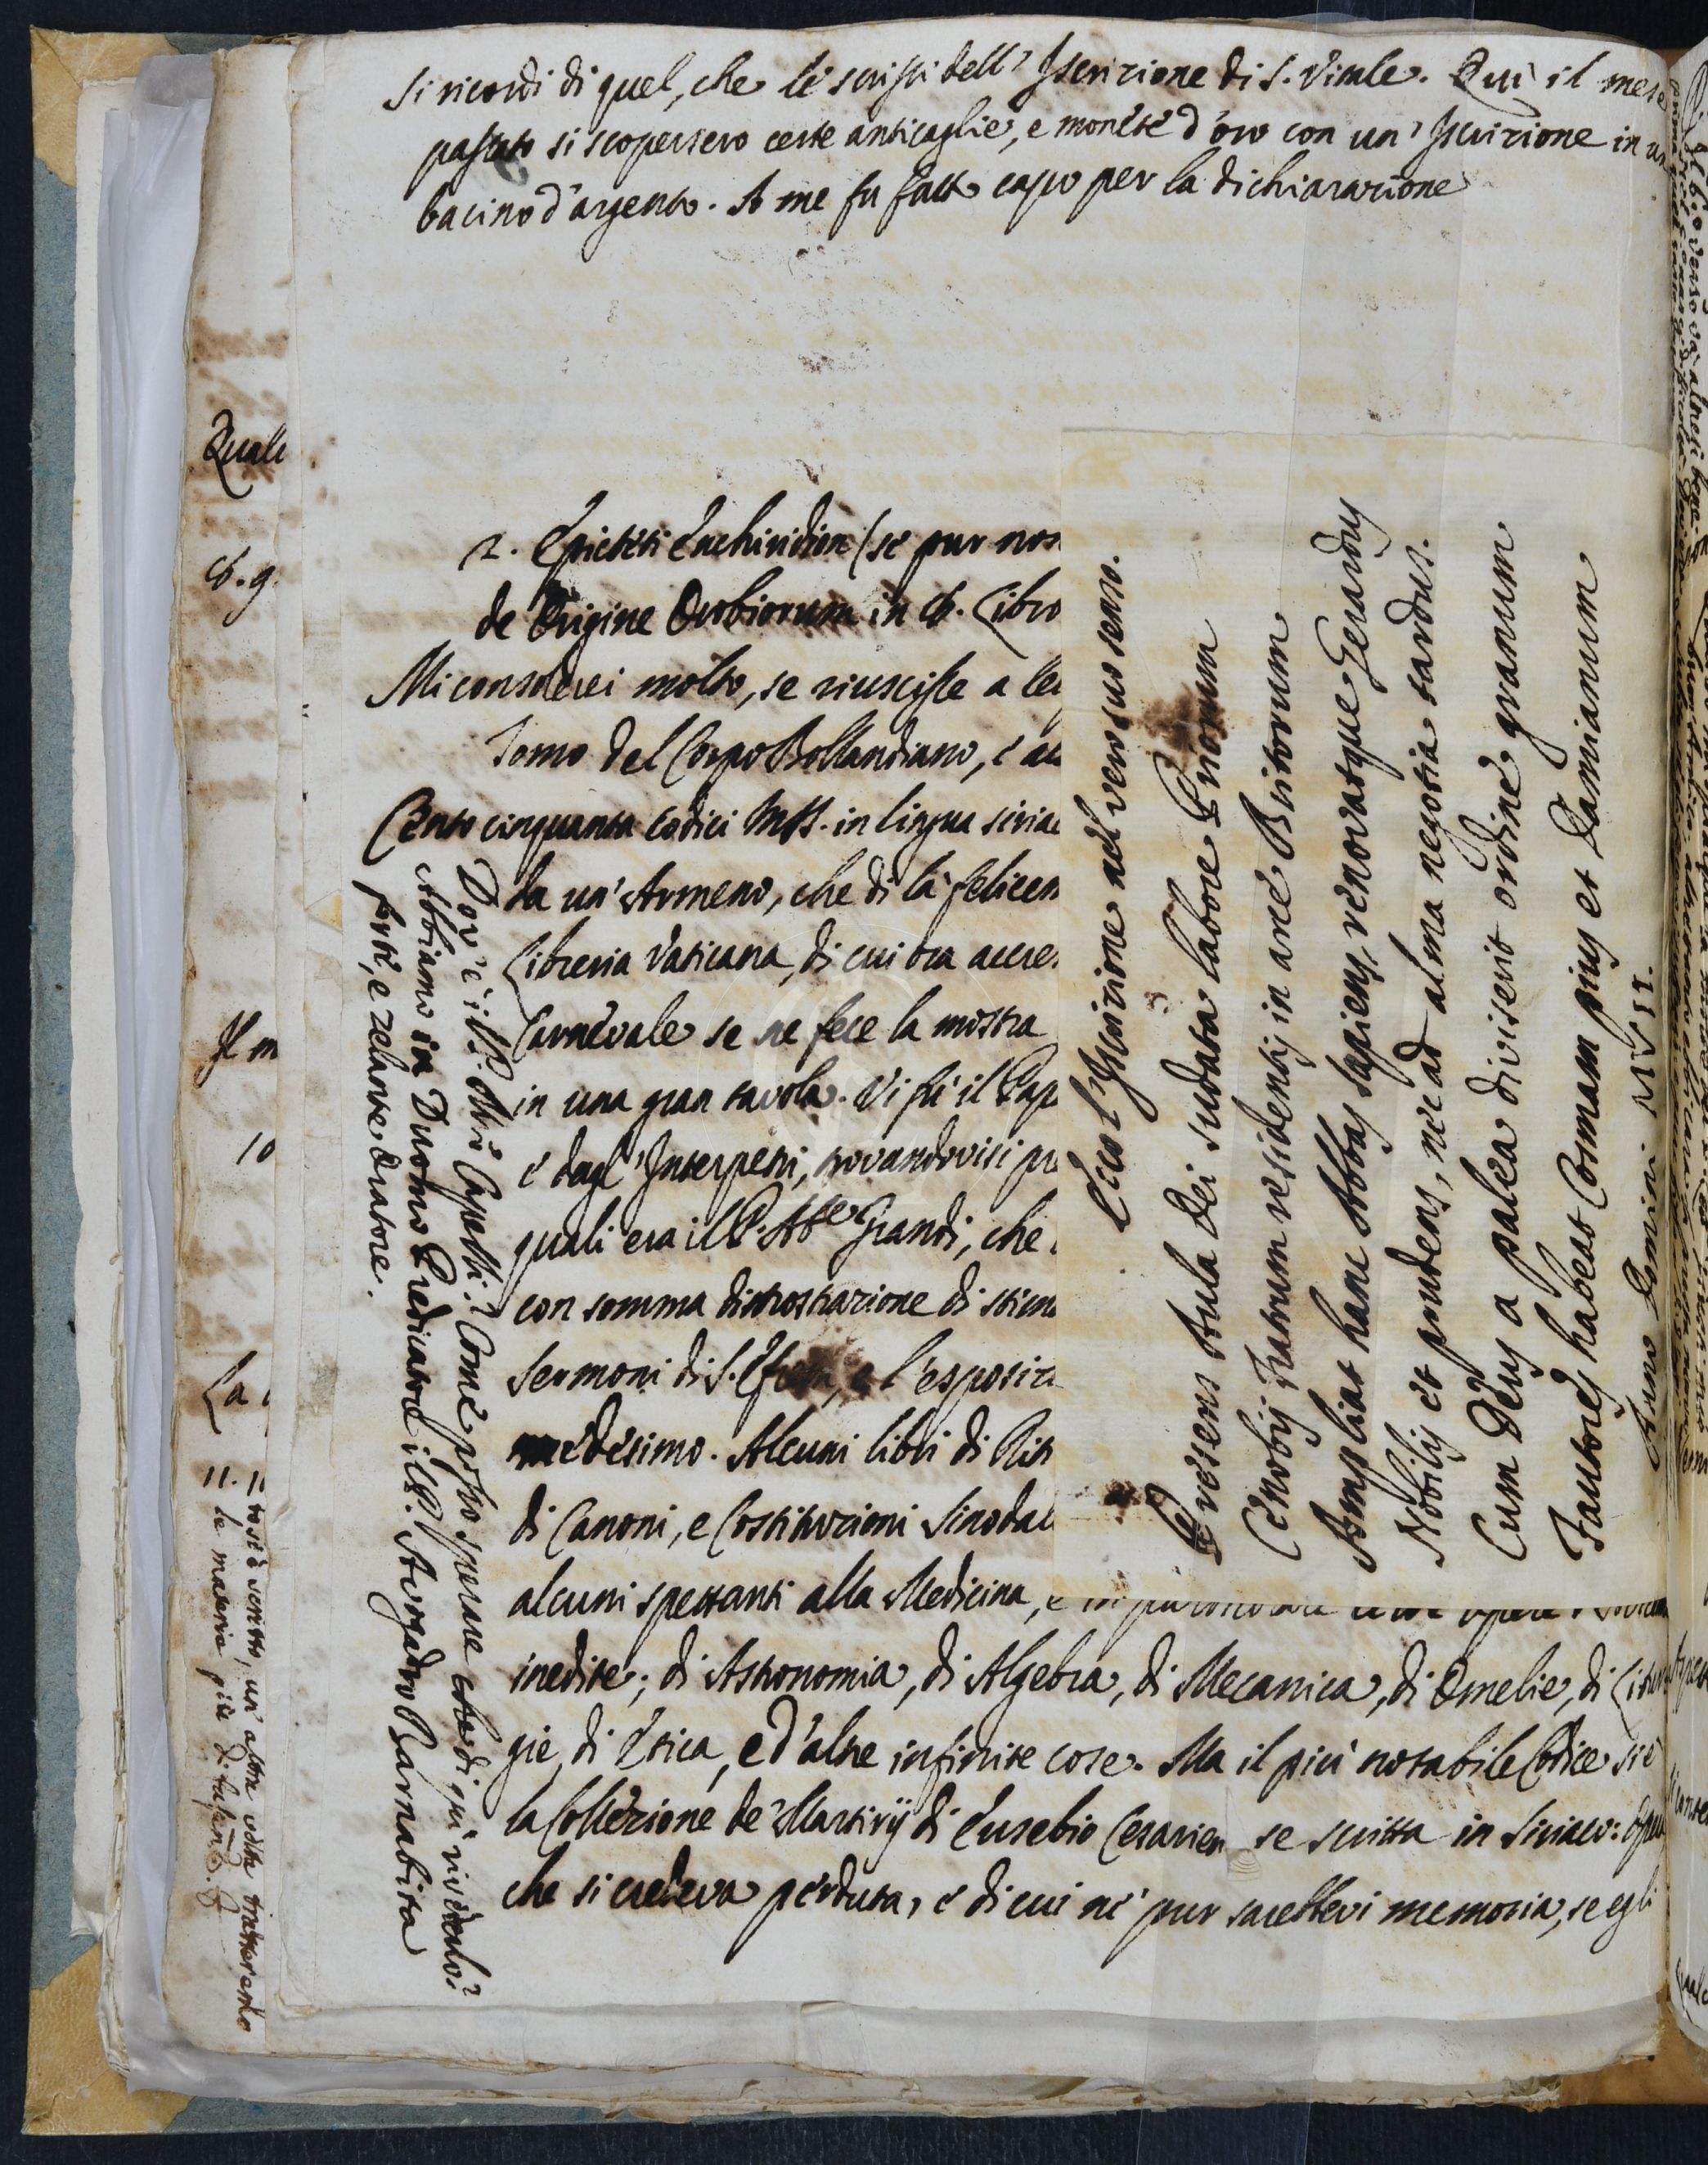 Si ricordi di quel, che le scrissi dell' Iscrizione di S. Vitale. Qui il mese
passato si scopersero certe anticaglie, e monete d'oro con un' Iscrizione in un
bacino d'argento. A me fu fatto capo per la dichiarazione
2. Epicteti Enchiridion (se pur non
de Origine Orobiorum in 4. Libro
Mi consolerei molto, se riuscisse a
Tomo del Corpo Bollandiano, e
Cento cinquanta Codici MSS. in lingua siriac
da un' Armeno, che di là felicem
Libreria Vaticana, di cui ora accre
Carnevale se ne fece la mostra
in una gran tavola. Vi fù il Pap
e dagl' Interpetri, trovandovisi pr
quali era il P. Abte Grandi, che
con somma dimostrazione di stim
Sermoni di S. Efrem, e l'esposiz
medesimo. Alcuni libri di Rit
di Canoni, e Costituzioni Sinodal
alcuni spettanti alla Medicina, e in particolare
inedite; di Astronomia, di Algebra, di Mecanica, di Omelie, di Litur
gie, di Etica, e d'altre infinite cose. Ma il più notabile Codice si è
la Collezione de' Martirij di Eusebio Cesarien se scritta in Siriaco: Opera
che si credeva perduta, e di cui nè pur sarebbevi memoria, se egli
Dov' è il P. Capelli? Come posso sperare di qui rivederlo?
Abbiamo in Duomo Predicatore il P. Avogadro Barnabita
forte, e zelante Oratore.
Ecco l'Iscrizione nel verso suo senso.
Presens Aula Dei sudata labore Priorum
Cenobij Fratrum residentis in arce Bertorum
Ampliat hanc Abbas sapiens, renovatque Gerardus
Nobilis et prudens, nec ad alma negotia tardus.
Cum Deus a palea diviserit ordine granum
Fautores habeat Cosmam pius et Damianum
Anno Domini
Quale
4. g.
Il m
10
La
11.
to si è scritto, un' altra volta tratteranno
la materia più di